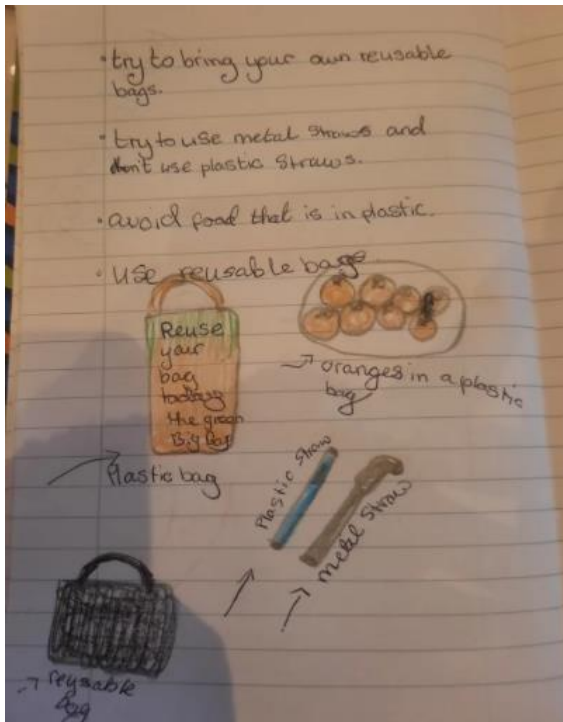 • try to bring your own reusable
bags.
• try to use metal straws and
don't use plastic straws.
• avoid food that is in plastic.
• use reusable bags.
Reuse
your
bag
the green
Big Bag
→ oranges in a plastic
bag
Plastic bag
Plastic straw
metal straw
→ reusable
bag